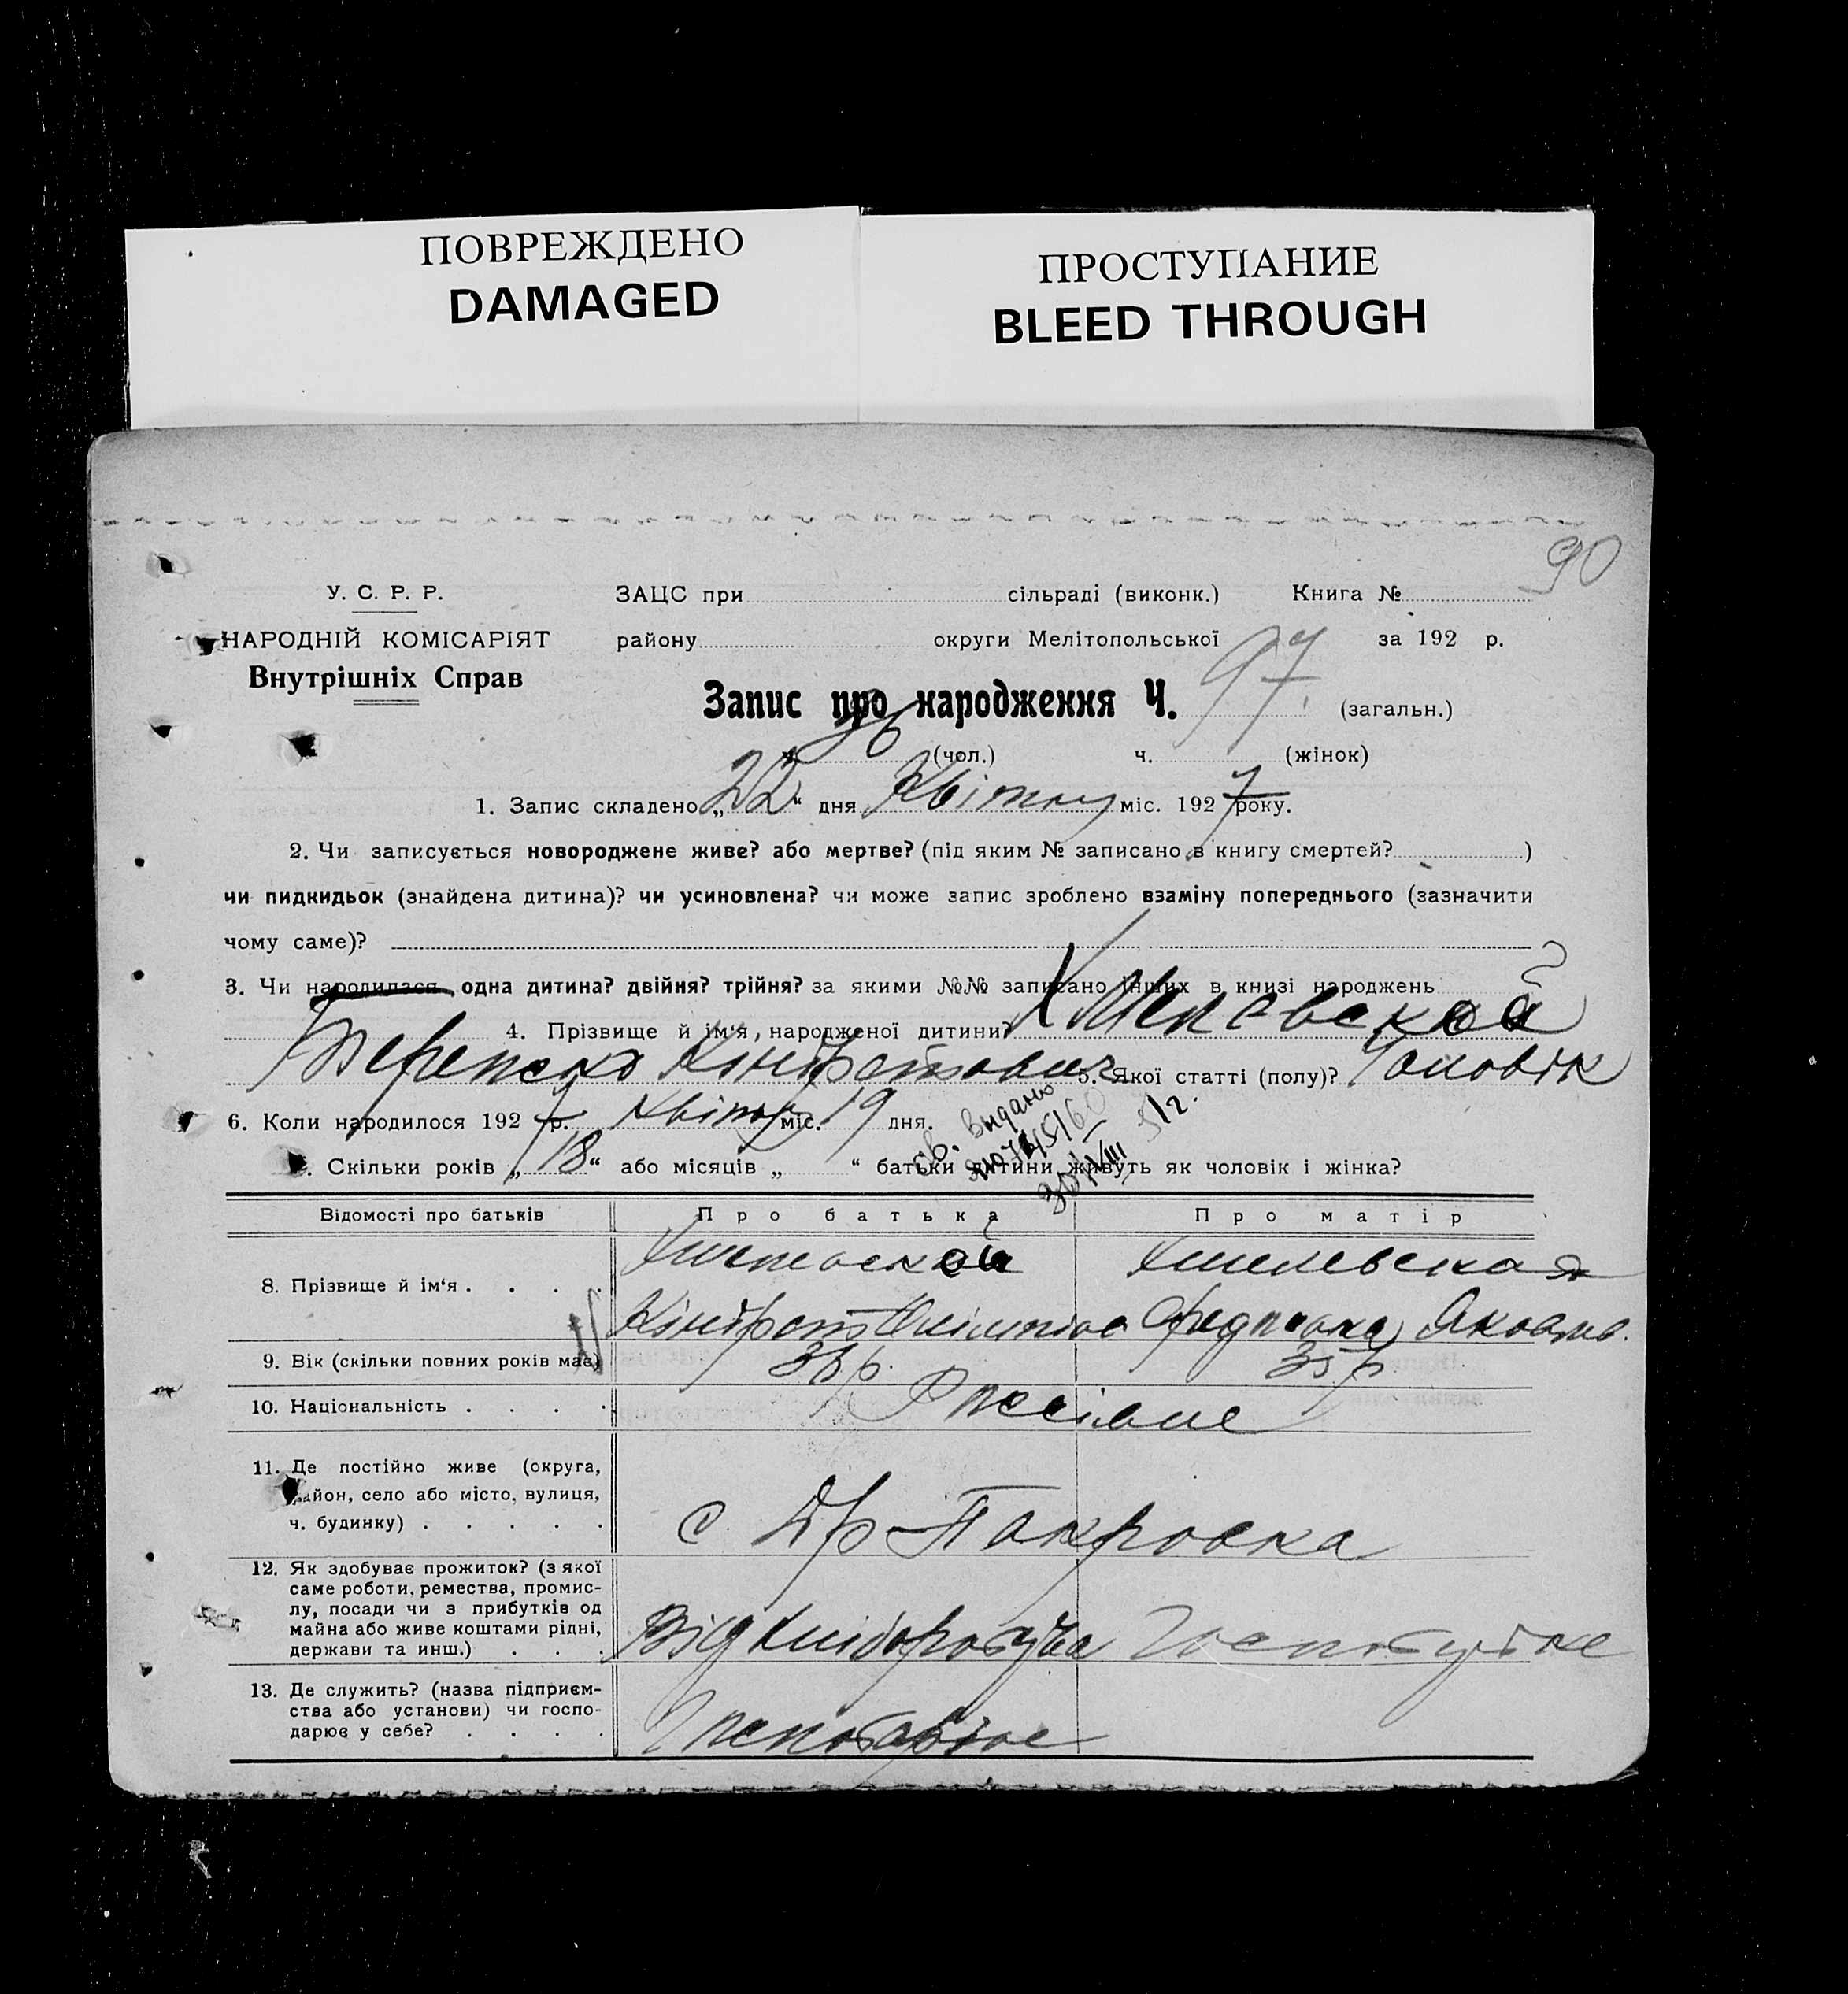 ПОВРЕЖДЕНО
DAMAGED
ПРОСТУПАНИЕ
BLEED THROUGH
90
У. С. Р. Р.
ЗАЦС при сільраді (виконк.) Книга №
НАРОДНІЙ КОМІСАРІЯТ
району округи Мелітопольської за 192 р.
Внутрішніх Справ
Запис про народження Ч. 97 (загальн.)
ч. 36 (чол.) ч. (жінок)
1. Запис складено „22“ дня Квітня міс. 1927 року.
2. Чи записується новороджене живе? або мертве? (під яким № записано в книгу смертей? )
чи пидкидьок (знайдена дитина)? чи усиновлена? чи може запис зроблено взаміну попереднього (зазначити
чому саме)?
3. Чи народилася одна дитина? двійня? трійня? за якими №№ записано інших в книзі народжень
4. Прізвище й ім‘я, народженої дитини? Хмелевской
Кіндратович 5. Якої статті (полу)? Чоловік
6. Коли народилося 1927 р. Квітня міс. 19 дня.
св. выдано
. Скільки років „18“ або місяців „ “ батьки дитини живуть як чоловік і жінка?
Відомості про батьків
Про батька
Про матір
8. Прізвище й ім‘я . . . .
Хмелевской
Хмелевская
Кіндрат
Яковлев.
9. Вік (скільки повних років має)
38 р.
35 р.
10. Національність . . . .
Россіяне
11. Де постійно живе (округа,
район, село або місто, вулиця,
ч. будинку) . . . . .
с. Др Покровка
12. Як здобуває прожиток? (з якої
саме роботи, ремества, промис-
лу, посади чи з прибутків од
майна або живе коштами рідні,
держави та инш.) . . .
Від хліборобства
13. Де служить? (назва підприєм-
ства або установи) чи госпо-
дарює у себе? . . . .